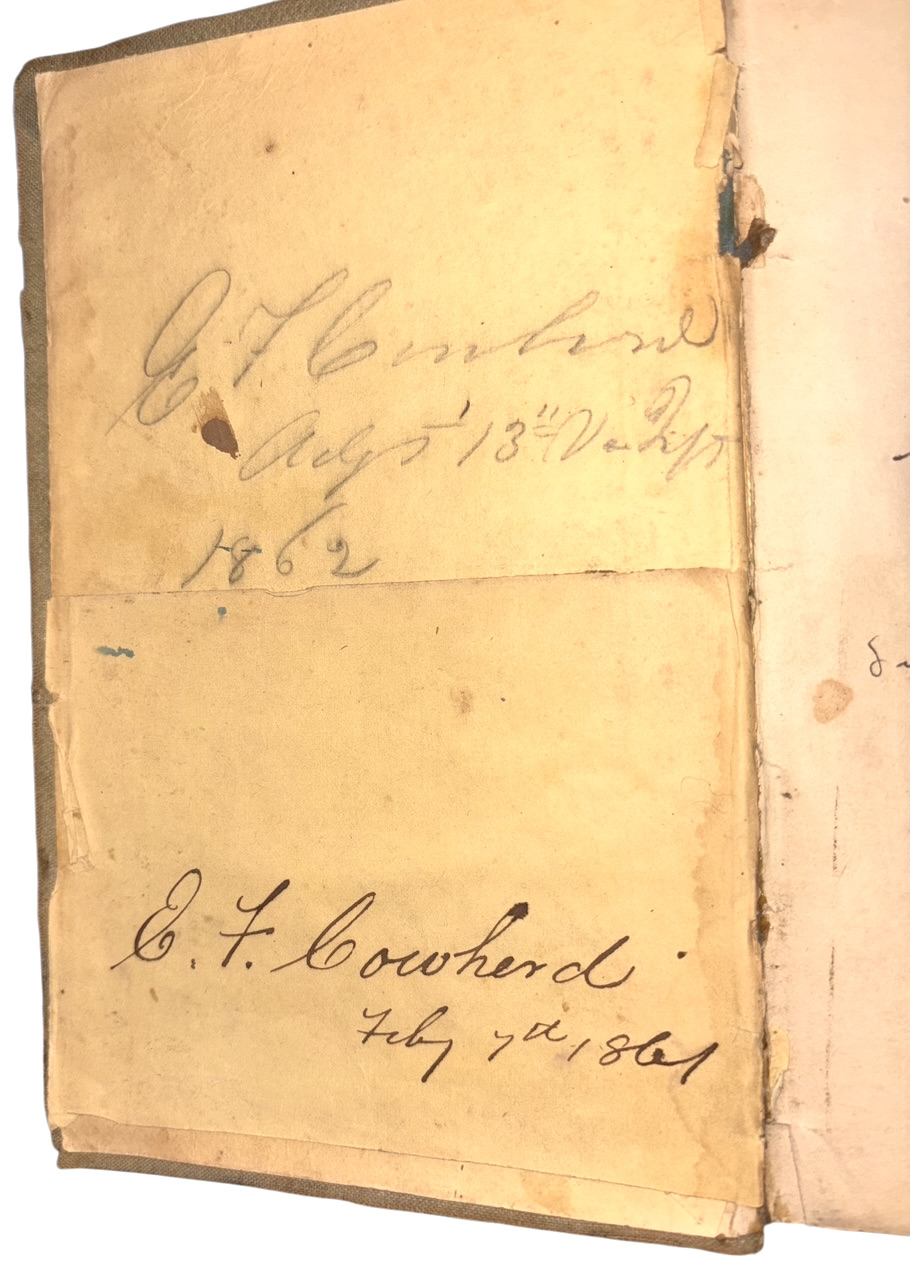 E F Cowherd
Adjt 13th Va Inft
1862
E. F. Cowherd.
Feby 7th 1861